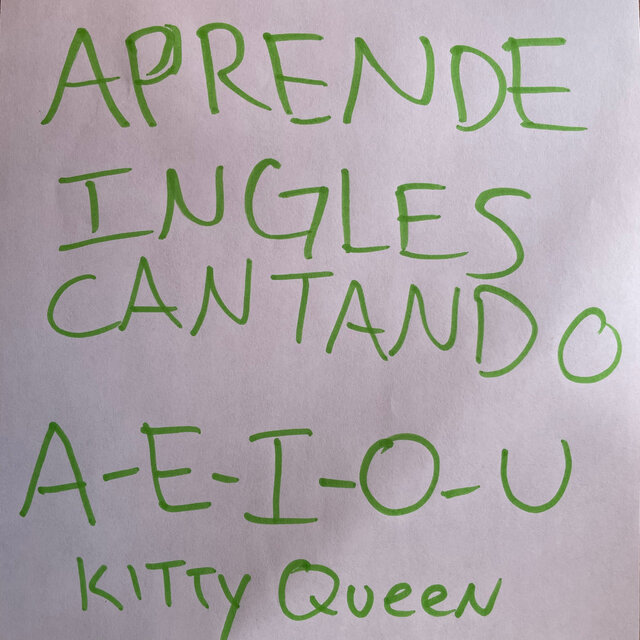 APRENDE
INGLES
CANTANDO
A-E-I-O-U
KITTY QueeN